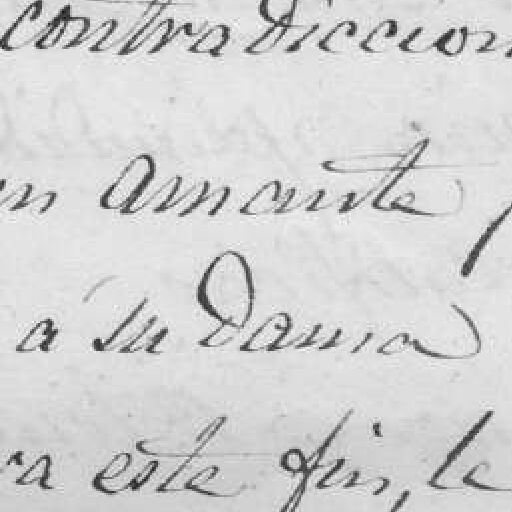 contradiccion
n amante
a su Dama
ra este fin, le